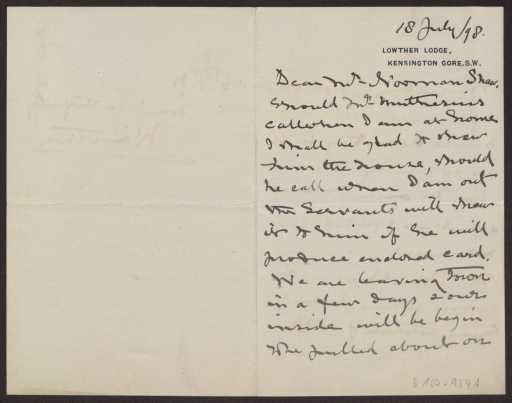 18 July/98.
LOWTHER LODGE,
KENSINGTON GORE, S.W.
Dear Mr. Norman Shaw,
Should Mr. Muthesius
call when I am at home
I shall be glad to shew
him the house, should
he call when I am out
the Servants will shew
it to him if he will
produce enclosed card.
We are leaving Town
in a few days & our
inside will be begin
to be pulled about on